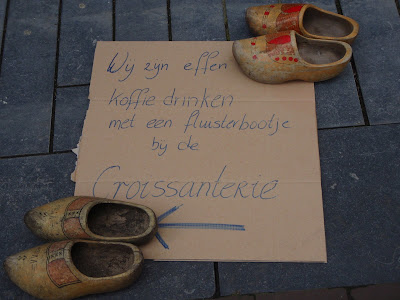 Wy zyn effen
koffie drinken
met een fluisterbootje
by de
Croissanterie